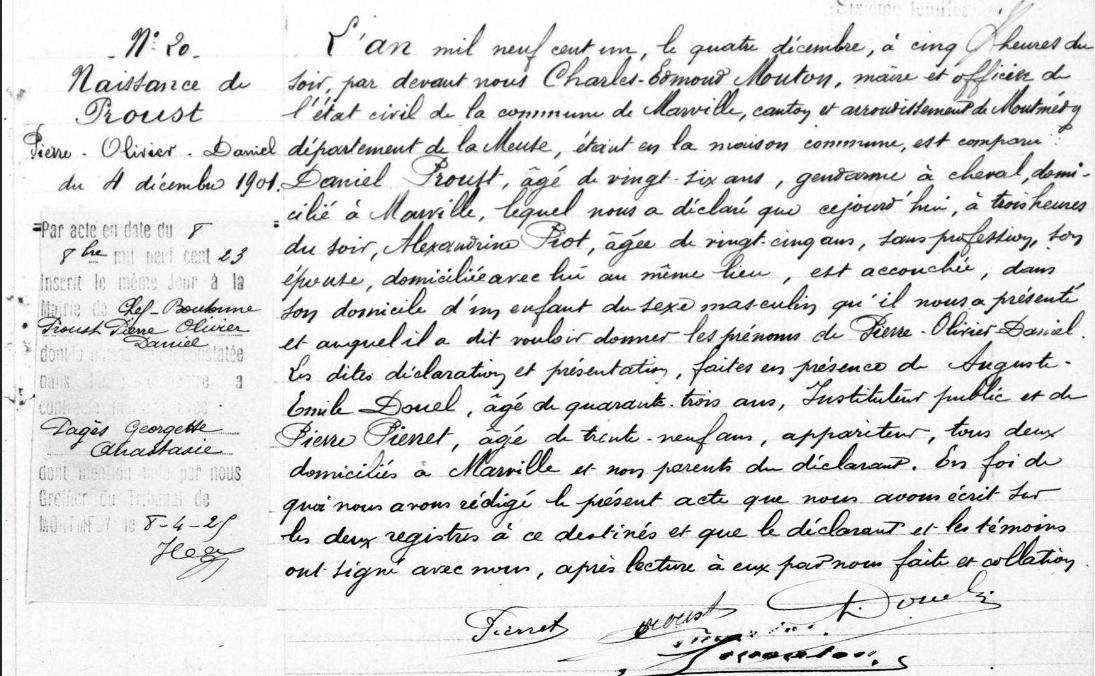 Sixième feuillet
N° 20
Naissance de
Proust
Pierre - Olivier - Daniel
du 4 décembre 1901.
Par acte en date du 8
8bre mil neuf cent 23
inscrit le même jour à la
Mairie de Chef-Boutonne
Proust Pierre Olivier
Daniel
dont la naissance est constatée
dans
a
contracté mariage avec
Pagès Georgette
Anastasie
dont mention faite par nous
Greffier du Tribunal de
MONTMEDY le 8-4-25
L'an mil neuf cent un, le quatre décembre, à cinq heures du
soir, par devant nous Charles-Edmond Mouton, maire et officier de
l'état civil de la commune de Marville, canton et arrondissement de Montmédy
département de la Meuse, étant en la maison commune, est comparu
Daniel Proust, âgé de vingt-six ans, gendarme à cheval, domi-
cilié à Marville, lequel nous a déclaré que cejourd'hui, à trois heures
du soir, Alexandrine Prot, âgée de vingt-cinq ans, sans profession, son
épouse, domiciliée avec lui au même lieu, est accouchée, dans
son domicile d'un enfant du sexe masculin qu'il nous a présenté
et auquel il a dit vouloir donner les prénoms de Pierre-Olivier-Daniel.
Les dites déclaration et présentation, faites en présence de Auguste-
Emile Douel, âgé de quarante-trois ans, Instituteur public et de
Pierre Pierret, âgé de trente-neuf ans, appariteur, tous deux
domiciliés à Marville et non parents du déclarant. En foi de
quoi nous avons rédigé le présent acte que nous avons écrit sur
les deux registres à ce destinés et que le déclarant et les témoins
ont signé avec nous, après lecture à eux par nous faite et collation.
Pierret Proust Douel
Mouton